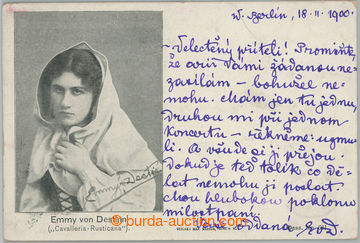 V. Berlín, 18. II. 1900.
- Velectěný příteli! Promiňte,
že arii Vámi žádanou ne-
zasílám - bohužel ne-
mohu. Mám jen tu jednu,
druhou mi při jednom
koncertu - řekněme: uzmu-
li. A všude si ji přejou.
dokud je teď tolik co dě-
lat nemohu ji poslat.
chou hlubokou poklonu
milostpaní
oddaná
Emmy Destinn
Emmy von Destinn
("Cavalleria-Rusticana").
burda-auction.com